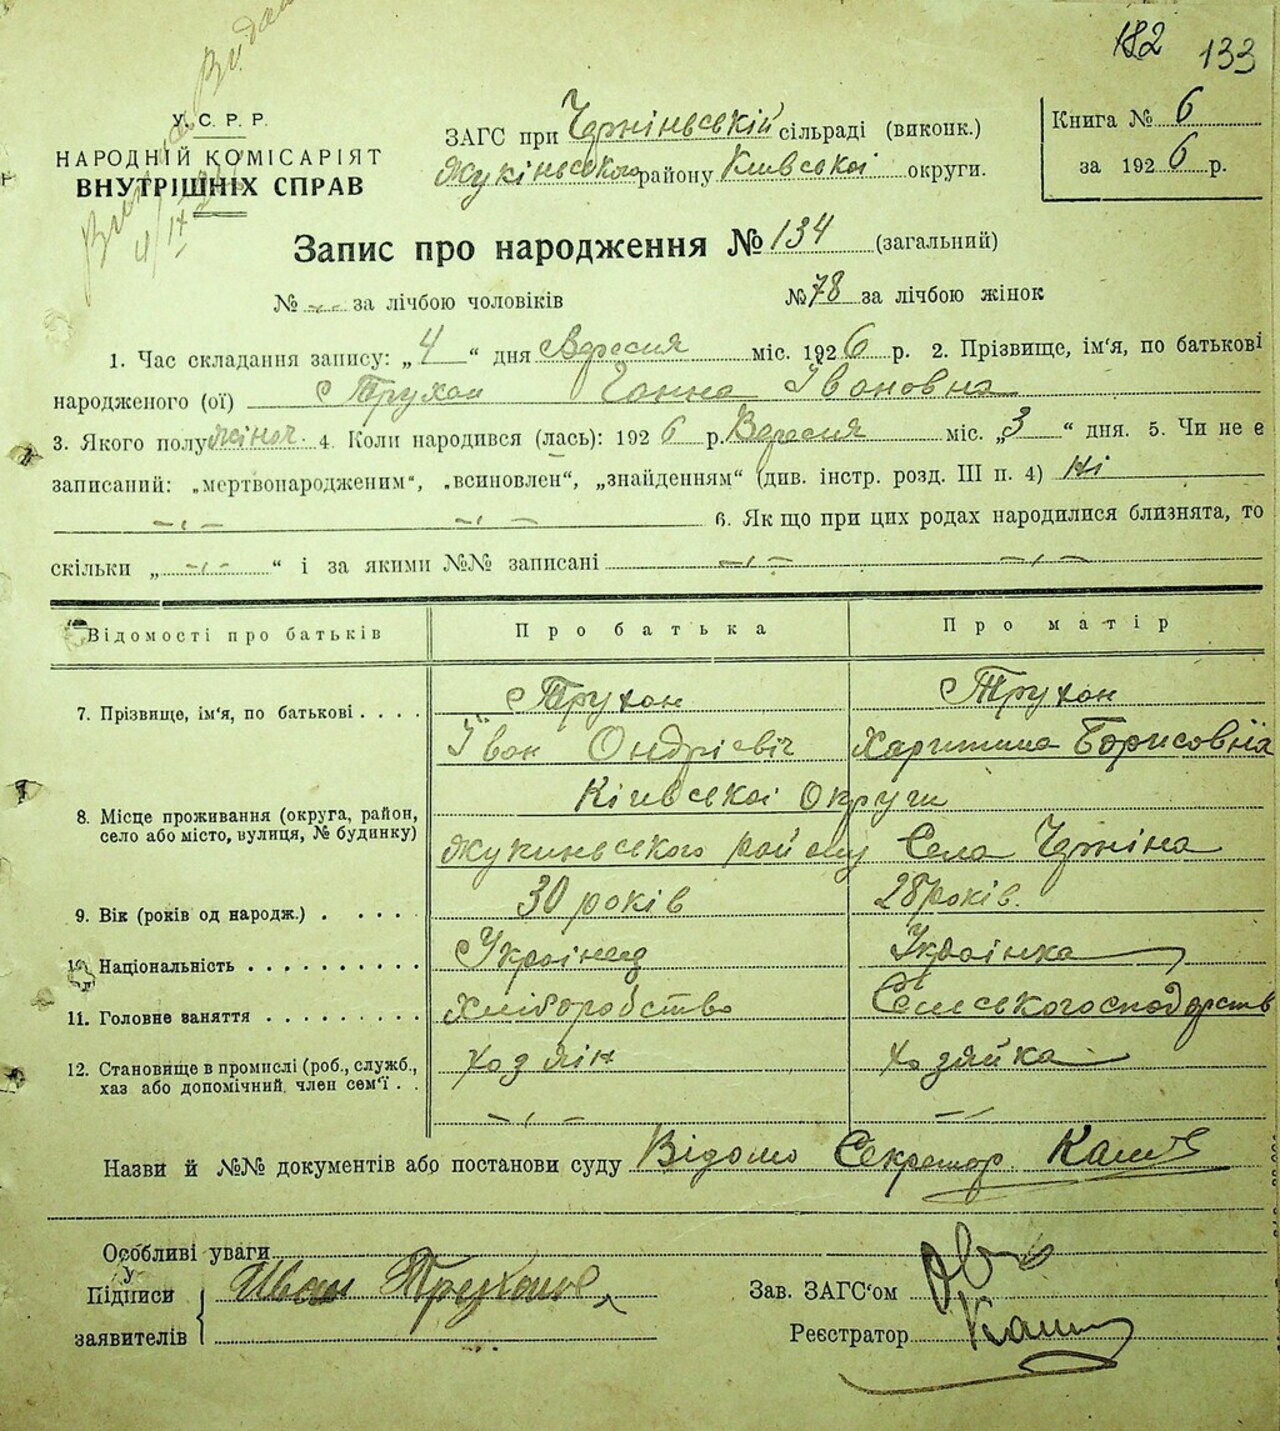 182 133
У. С. Р. Р.
НАРОДНІЙ КОМІСАРІЯТ
ВНУТРІШНІХ СПРАВ
ЗАГС при Чернінвській сільраді (виконк.)
Жукінвського району Київської округи.
Книга № 6
за 1926 р.
Запис про народження № 134 (загальний)
№ -„- за лічбою чоловіків
№ 78 за лічбою жінок
1. Час складання запису: „4“ дня Вересня міс. 1926 р. 2. Прізвище, ім'я, по батькові
народженого (ої) Трухан Ганна Івановна
3. Якого полу жіноч. 4. Коли народився (лась): 1926 р. Вересня міс. „3“ дня. 5. Чи не є
записаний: „мертвонародженим“, „всиновлен“, „знайденням“ (див. інстр. розд. III п. 4) Ні
-„- -„- 6. Як що при цих родах народилися близнята, то
скільки „-„-“ і за якими №№ записані -„- -„-
Відомості про батьків
Про батька
Про матір
7. Прізвище, ім'я, по батькові . . . .
Трухон
Трухон
Івон Ондрієвіч
Харитина Борисовна
8. Місце проживання (округа, район,
село або місто, вулиця, № будинку)
Київської Округи
Жукинвського району Села Черніна
9. Вік (років од народж.) . . . . .
30 років
28 років.
10. Національність . . . . . . . . . .
Українец
Українка
11. Головне заняття . . . . . . . . .
Хліборобство
Сільськогосподорств
12. Становище в промислі (роб., служб.,
хаз або допомічний член сем'ї . .
Хозяін
Хозяйка
-„-
Назви й №№ документів або постанови суду Відомо Секретор
Особливі уваги
Підписи
заявителів
Иван
Зав. ЗАГС'ом
Реєстратор